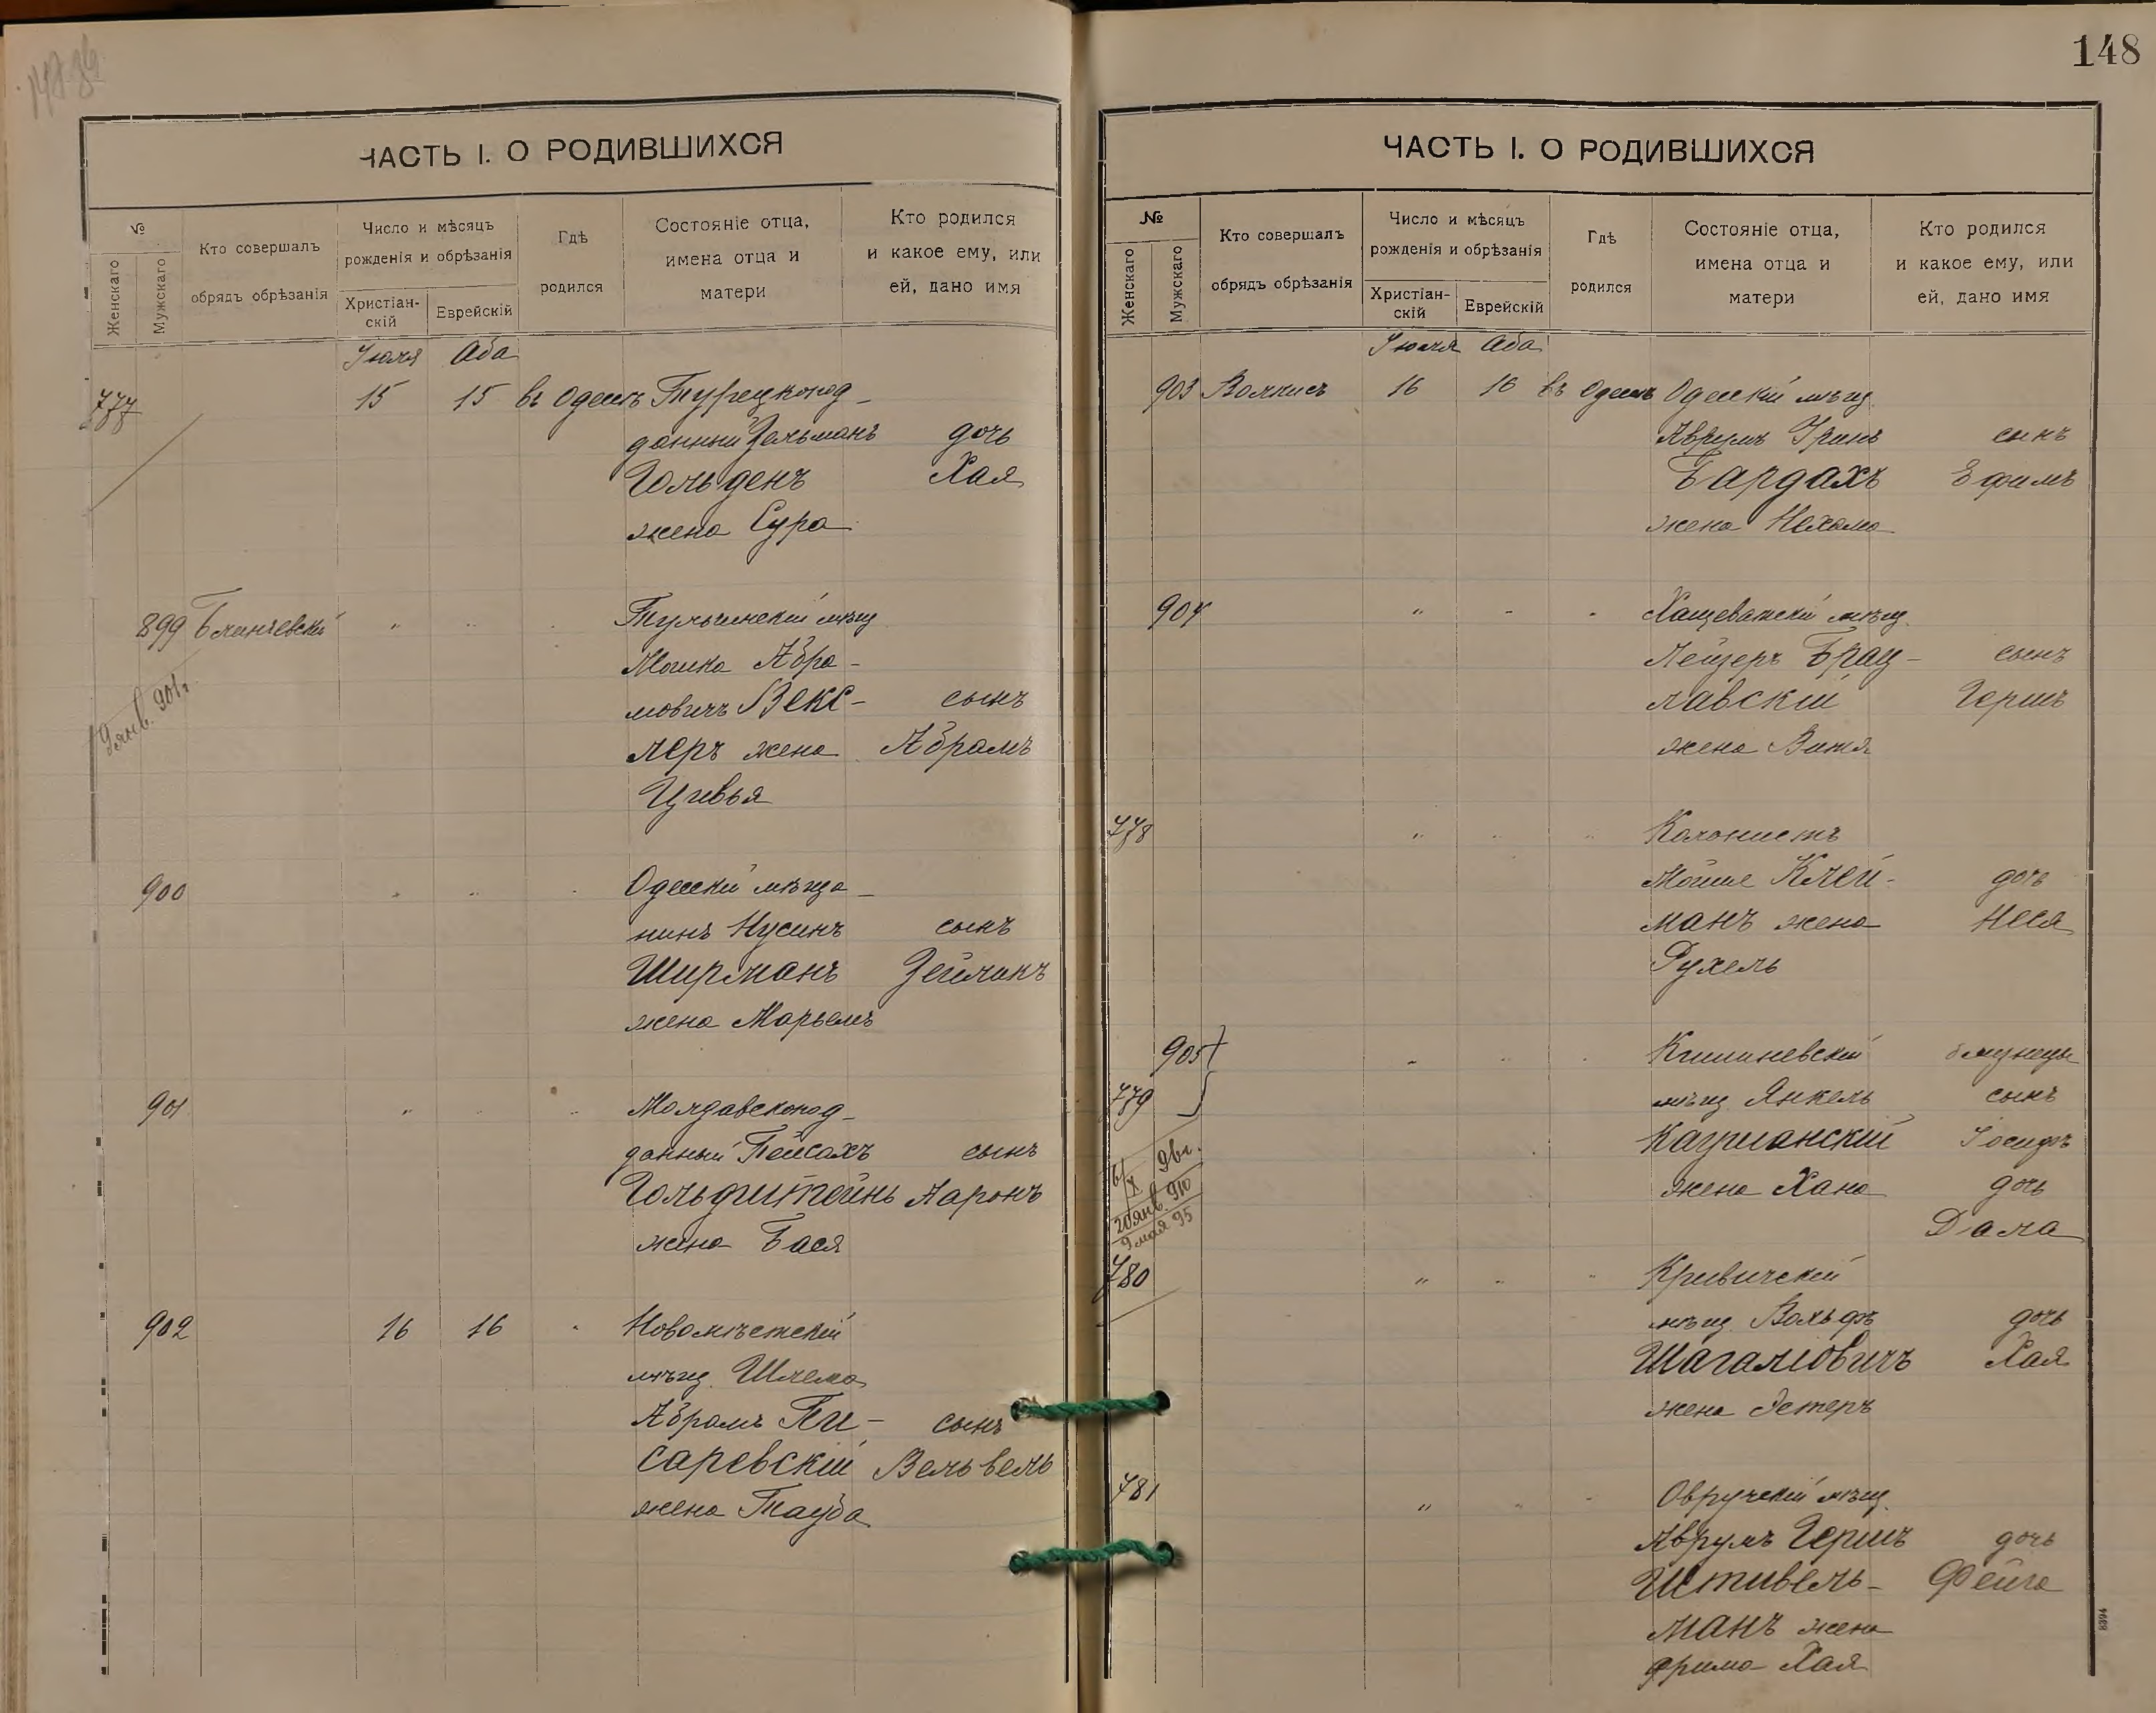 148
ЧАСТЬ I. О РОДИВШИХСЯ
№
Женскаго
Мужскаго
Кто совершалъ
обрядъ обрѣзанія
Число и мѣсяцъ
рожденія и обрѣзанія
Христіан-
скій
Еврейскій
Гдѣ
родился
Состояніе отца,
имена отца и
матери
Кто родился
и какое ему, или
ей, дано имя
Іюля Аба
777 15 15 въ Одессѣ Турецкопод-
данный Зельманъ дочь
Гольденъ Хая
жена Сура
899 Блинчевскій " " Тульчинскій мѣщ
Мошко Абра-
мовичъ Векс- сынъ
леръ жена Абрамъ
Цивья
19 янв. 901 г.
900 " " Одесскій мѣща-
нинъ Нусинъ сынъ
Ширманъ Зейликъ
жена Марьемъ
901 " " Молдавскопод-
данный Пейсахъ сынъ
Гольдштейнъ Ааронъ
жена Бася
902 16 16 " Новомѣстскій
мѣщ. Шлема
Абрамъ Пи- сынъ
саревскій Вельвель
жена Тауба
ЧАСТЬ I. О РОДИВШИХСЯ
№
Женскаго
Мужскаго
Кто совершалъ
обрядъ обрѣзанія
Число и мѣсяцъ
рожденія и обрѣзанія
Христіан-
скій
Еврейскій
Гдѣ
родился
Состояніе отца,
имена отца и
матери
Кто родился
и какое ему, или
ей, дано имя
Іюля Аба
903 16 16 въ Одессѣ Одесскій мѣщ.
Аврумъ сынъ
Бардахъ Ефимъ
жена Нехама
904 " " " Хащеватскій мѣщ.
Лейзеръ Брац- сынъ
лавскій Гершъ
жена
778 " " " Колонистъ
Мойше Клей- дочь
манъ жена Неся
Рухель
905 " " " Кишиневскій близнецы
779 мѣщ. Янкель сынъ
жена Хана Іосифъ
дочь
20 янв. 910
9 мая 95
780 " " " Кривичскій
мѣщ. Вольфъ дочь
Шагаловичъ Хая
жена Эстеръ
781 " " " Овручскій мѣщ.
Аврумъ Гершъ дочь
Штивель- Фейга
манъ жена
Фрима Хая
8394